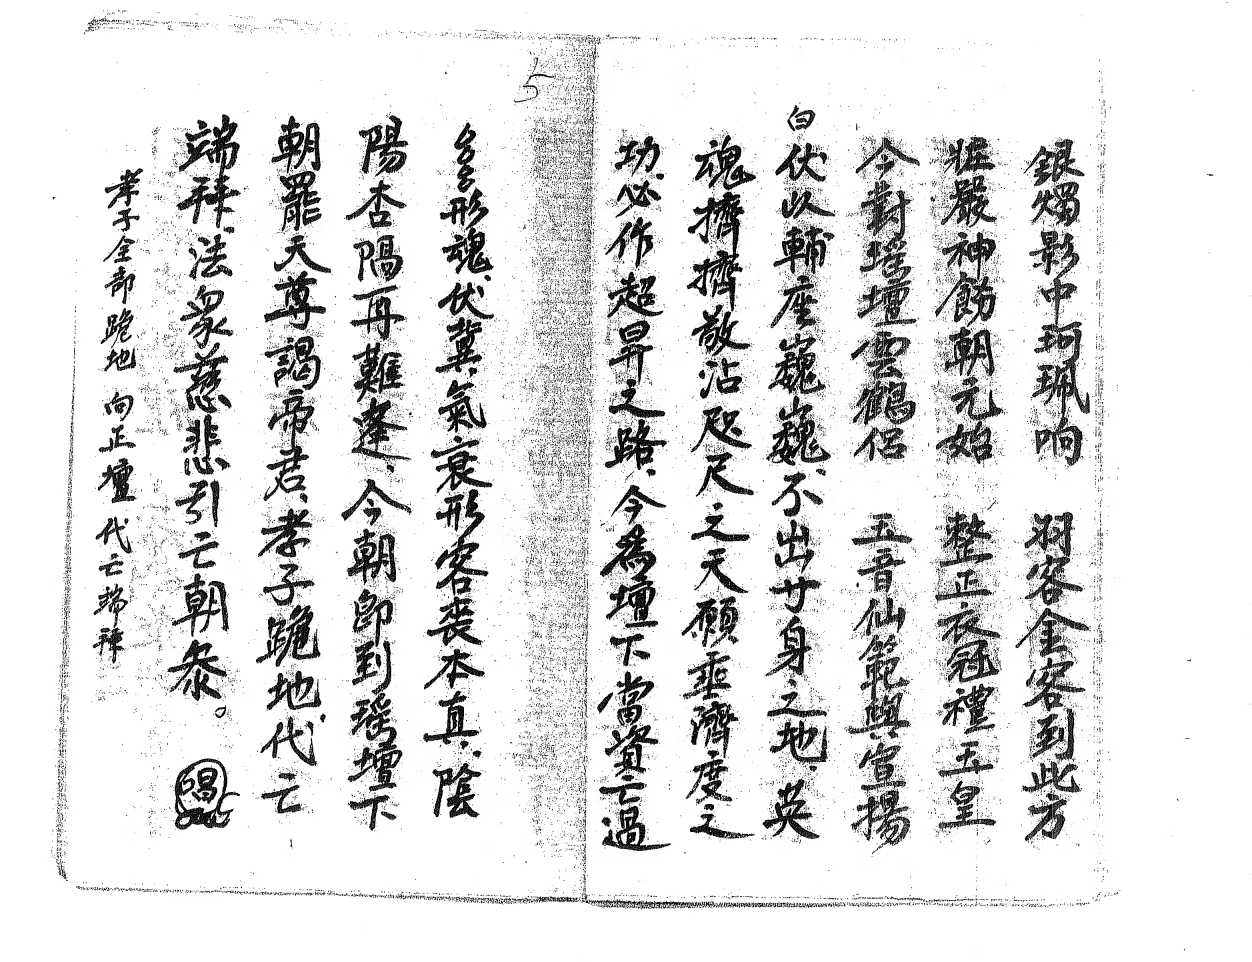 銀燭影中珂珮响　羽客金客到此方
壯嚴神飭朝元始　整正衣冠禮五皇
今對瑤壇雲鶴侶　五音仙範與宣揚
白　伏以輔座巍巍、不出寸身之地、英
魂擠擠敬沾咫尺之天願垂濟度之
功、必作超昇之路、今為壇下當資亡過
形魂、伏冀、氣衰形容丧本真、陰
陽杳隔再難逢、今朝即到瑤壇下
朝罷天尊謁帝君、孝子跪地、代亡
端拜、法眾慈悲引亡朝叅。
唱
孝子全部跪地　向正壇代亡端拜
5